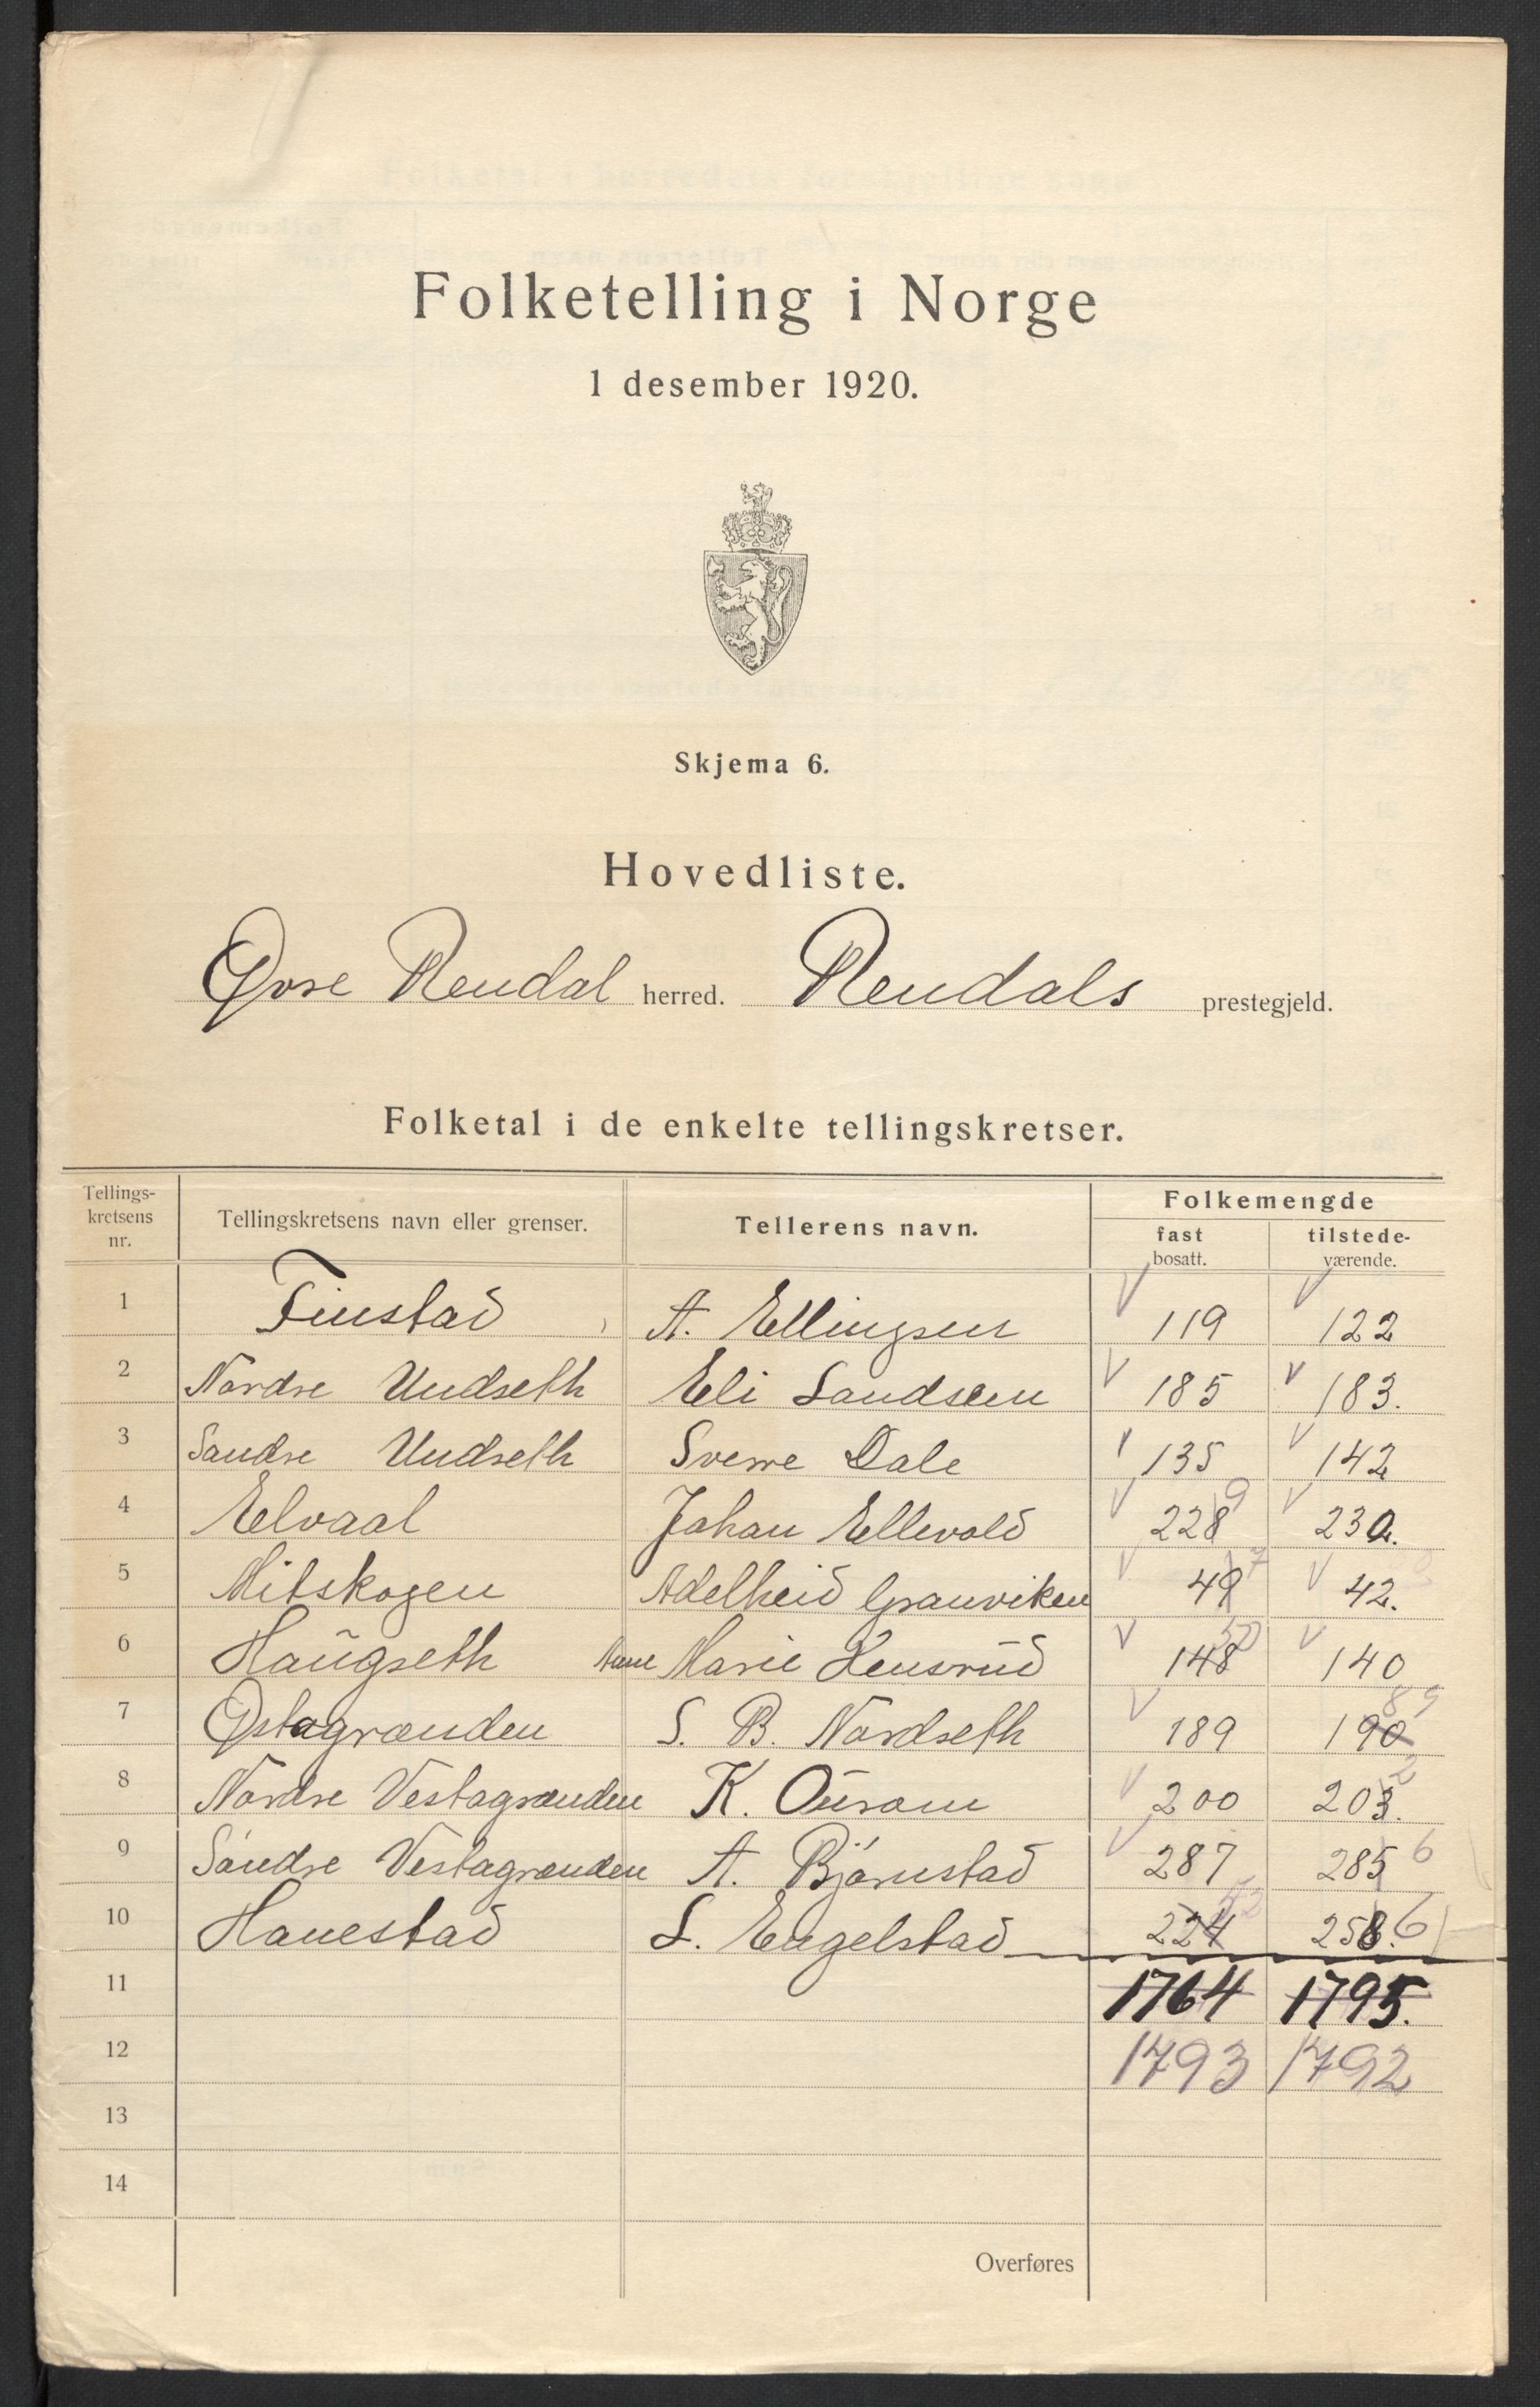 Folketelling i Norge
1 desember 1920.
Skjema 6.
Hovedliste.
Øvre Rendal herred. Rendals prestegjeld.
Folketal i de enkelte tellingskretser.
Tellings-
kretsens
nr.
Tellingskretsens navn eller grenser.
Tellerens navn.
Folkemengde
fast
bosatt.
tilstede-
værende.
1 Finstad A. Ellingsen 119 122
2 Nordre Undseth Eli Landsem 185 183.
3 Søndre Undseth Sverre Dale 135 142
4 Elvaal Johan Ellevold 228 9 230.
5 Mitskogen Adelheid Granviken 49 7 42.
6 Haugseth Anne Marie Hensrud 148 50 140
7 Østagrænden S. B. Nordseth 189 190 89
8 Nordre Vestagrænden K. Øverom 200 203. 2
9 Søndre Vestagrænden A. Bjørnstad 287 285 6
10 Hanestad L. Engelstad 224 52 258. 6
11 1764 1795.
12 1793 1792
13
14
Overføres